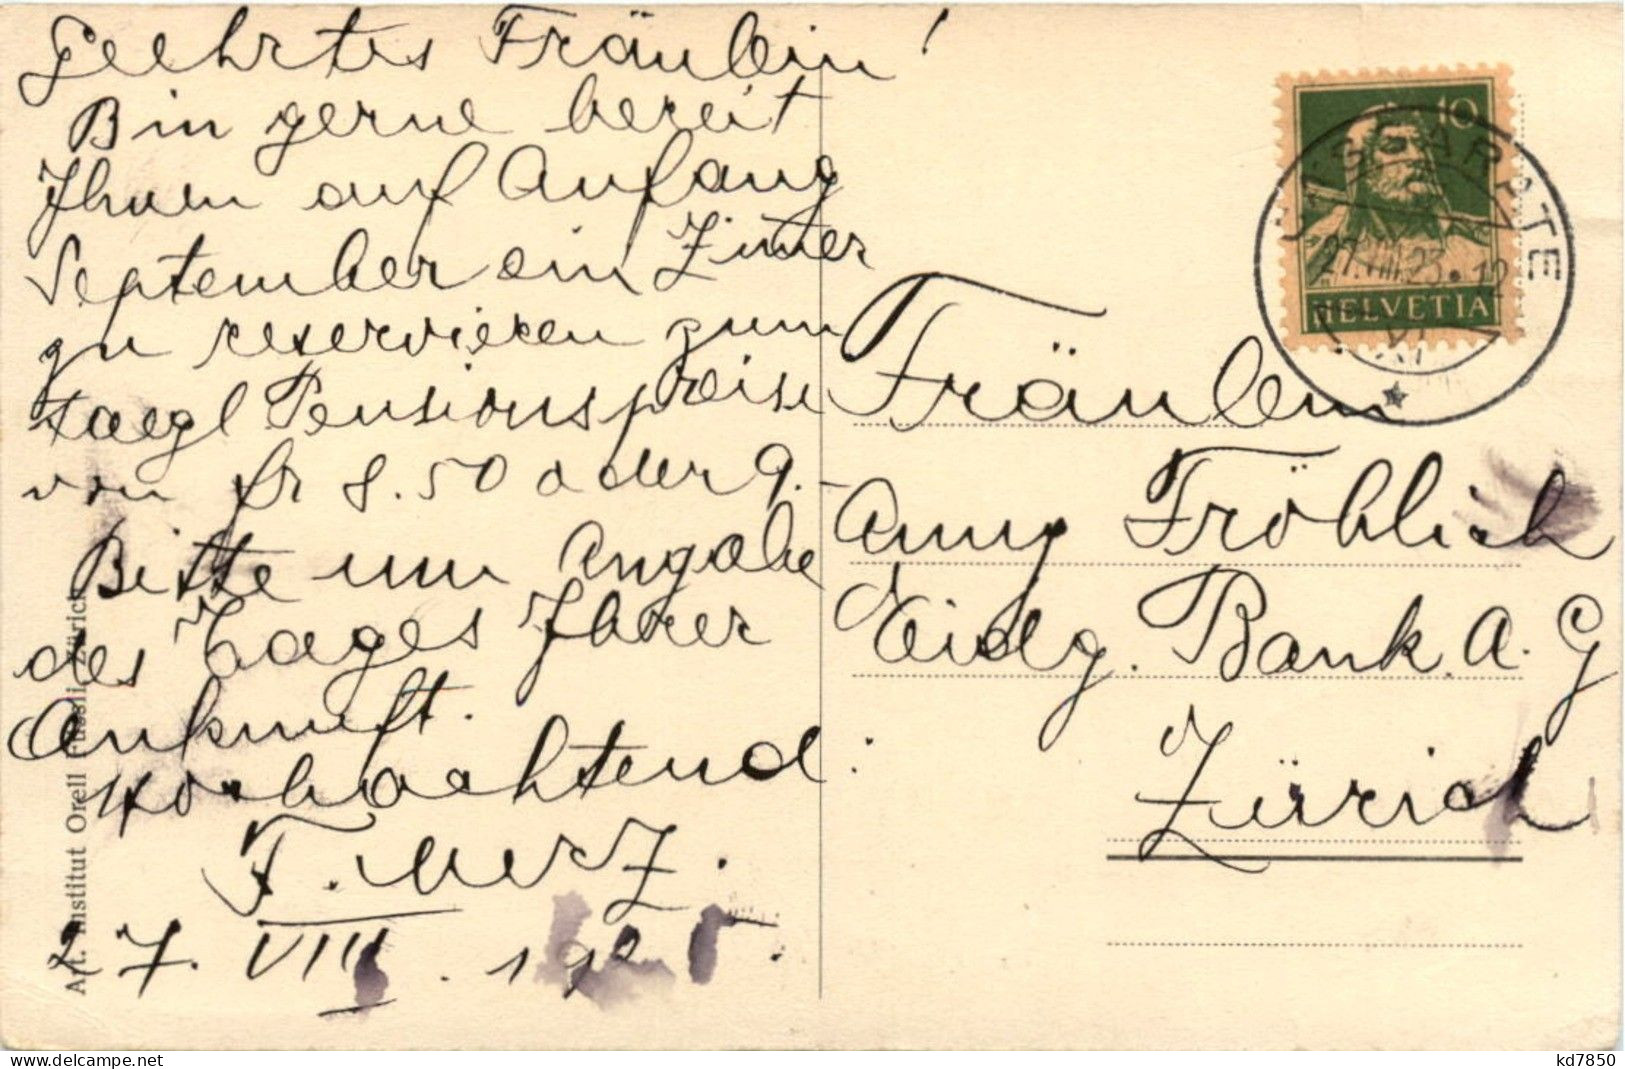 Geehrtes Fräulein!
Bin gerne bereit
Ihnen auf Anfang
September ein Zimer
zu reservieren zum
taegl Pensionspreise
von fr 8.50 oder 9.-
Bitte um Angabe
des Tages Ihrer
Ankunft.
Hochachtend:
F. Merz.
27. VIII. 192
10
27.VIII.23.12
HELVETIA
Fräulein
Anny Fröhlich
Eidg. Bank. A. G
Zürich
Art. Institut Orell Füssli, Zürich
kd7850